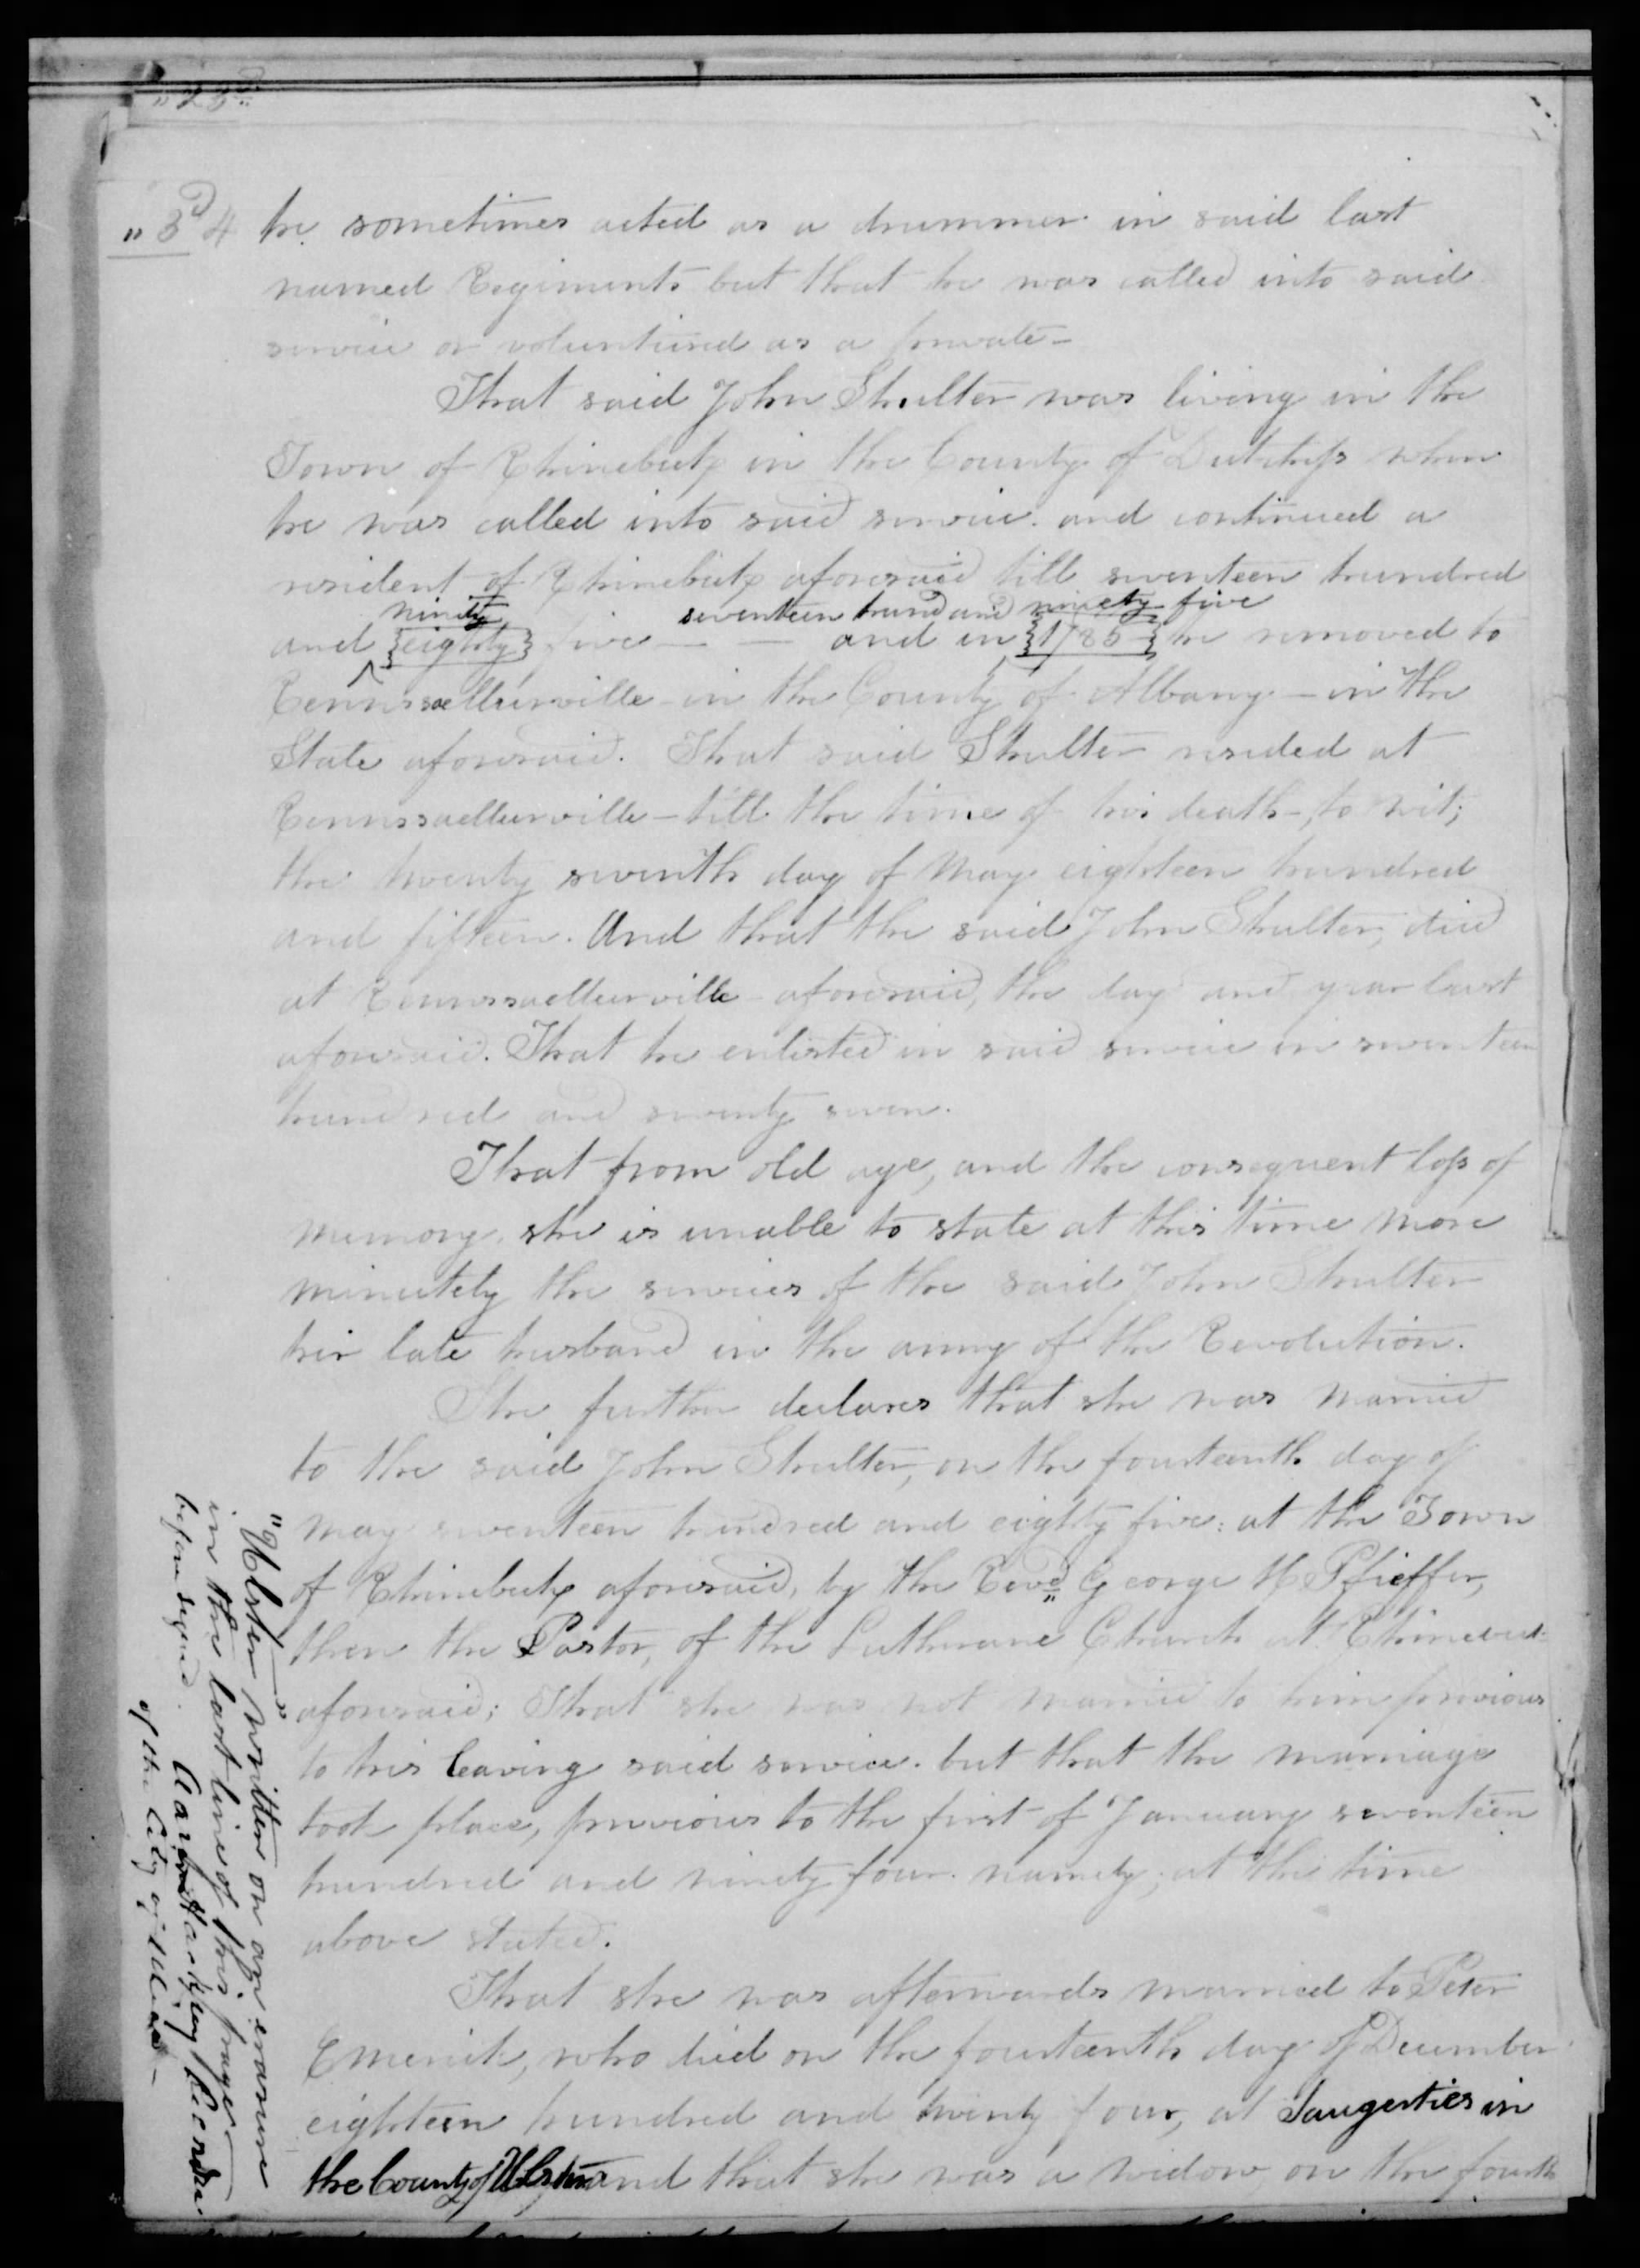 "3d 4 he sometimes acted as a drummer in said last
named Regiments but that he was called into said
service or volunteered as a private—
That said John Shulter was living in the
Town of Rhinebeck in the County of Dutchess when
he was called into said service. and continued a
resident of Rhinebeck aforesaid till seventeen hundred
ninety seventeen hund and ninety five
and {eighty} five — — and in {1785} he removed to
Rennssaellurville in the County of Albany — in the
State aforesaid. That said Shulter resided at
Rennssaellurville — till the time of his death, to wit;
the twenty seventh day of May eighteen hundred
and fifteen. And that the said John Shulter, died
at Rennssaellurville aforesaid, the day and year last
aforesaid. That he enlisted in said service in seventeen
hundred and seventy seven.
That from old age, and the consequent loss of
memory, she is unable to state at this time more
minutely the services of the said John Shulter
her late husband in the army of the Revolution.
She further declares that she was married
to the said John Shulter, on the fourteenth day of
May seventeen hundred and eighty five: at the Town
of Rhinebeck aforesaid, by the Revd George H Pfieffer,
then the Pastor, of the Lutherane Church at
aforesaid; That she was not married to him previous
to his leaving said service. but that the marriage
took place, previous to the first of January seventeen
hundred and ninety four. namely; at the time
above stated.
That she was afterwards married to Peter
Emerick, who died on the fourteenth day of December
eighteen hundred and twenty four, at Saugerties in
the County of Ulster and that she was a widow, on the fourth
"Ulster" written on an erasure
in the last line of this page
before signed.
of the City of